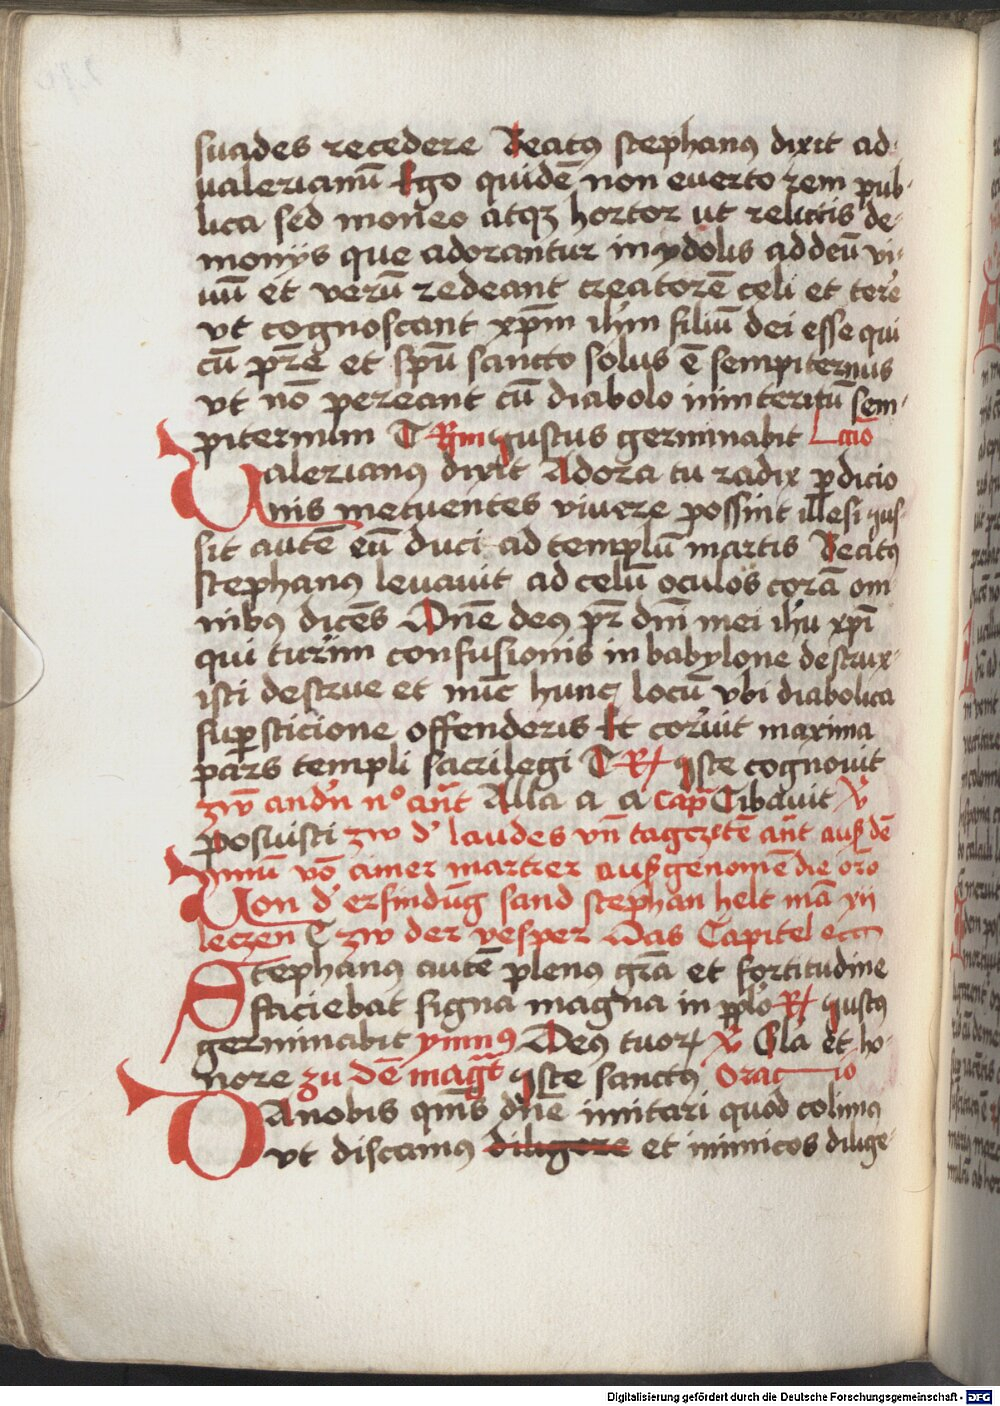 suades recedere Beatꝰ stephanꝰ dixit ad
ualerianū Ego quidē non euerto rem pub-
lica sed moneo atqꝫ hortor ut relictis de-
monijs que adorantur in ydolis ad deū vi-
uū et verū redeant creatorē celi et tere
vt cognoscant xp̄m ih̄m filiū dei esse qui
cū pr̄e et sp̄u sancto solus ē sempiternus
vt nō pereant cū diabolo in interitū sem-
piternum T Rm iustus germinabit Lccio
Valerianꝰ dixit Adora tu radix ꝑdicio
nis metuentes viuere possint illesi ius-
sit autē eū duci ad templū martis Beatꝰ
stephanꝰ leuauit ad celū oculos corā om
nibꝰ dicēs Dn̄e deꝰ pr̄ dn̄i mei ih̄u xp̄i
qui turrim confusionis in babylone destrux-
isti destrue et nūc hunc locū vbi diabolica
suꝑsticione offenderis Et coruit maxima
pars templi sacrilegi T R iste cognouit
zw̄ andn̄ n° an̄t Alla a a cap̄ Cibauit v̄
posuisti zw d' laudes vn̄ tagezitē an̄t ausz dē
ymnū vō ainer martrer ausz genomē die or̄o
Von d' erfindūg sand stephan helt mā xii
leczen T zw der vesper Das Capitel ecc
Stephanꝰ autē plenꝰ gr̄a et fortitudine
faciebat signa magna in pplo R iustꝰ
germinabit ymnꝰ Deꝰ tuorꝝ v̄ Gl̄a et ho-
nore zu dē magt̄ iste sanctꝰ Oracio
DA nobis qm̄s dn̄e imitari quod colimꝰ
vt discamꝰ diligere et inimicos dilige-
Digitalisierung gefördert durch die Deutsche Forschungsgemeinschaft - DFG